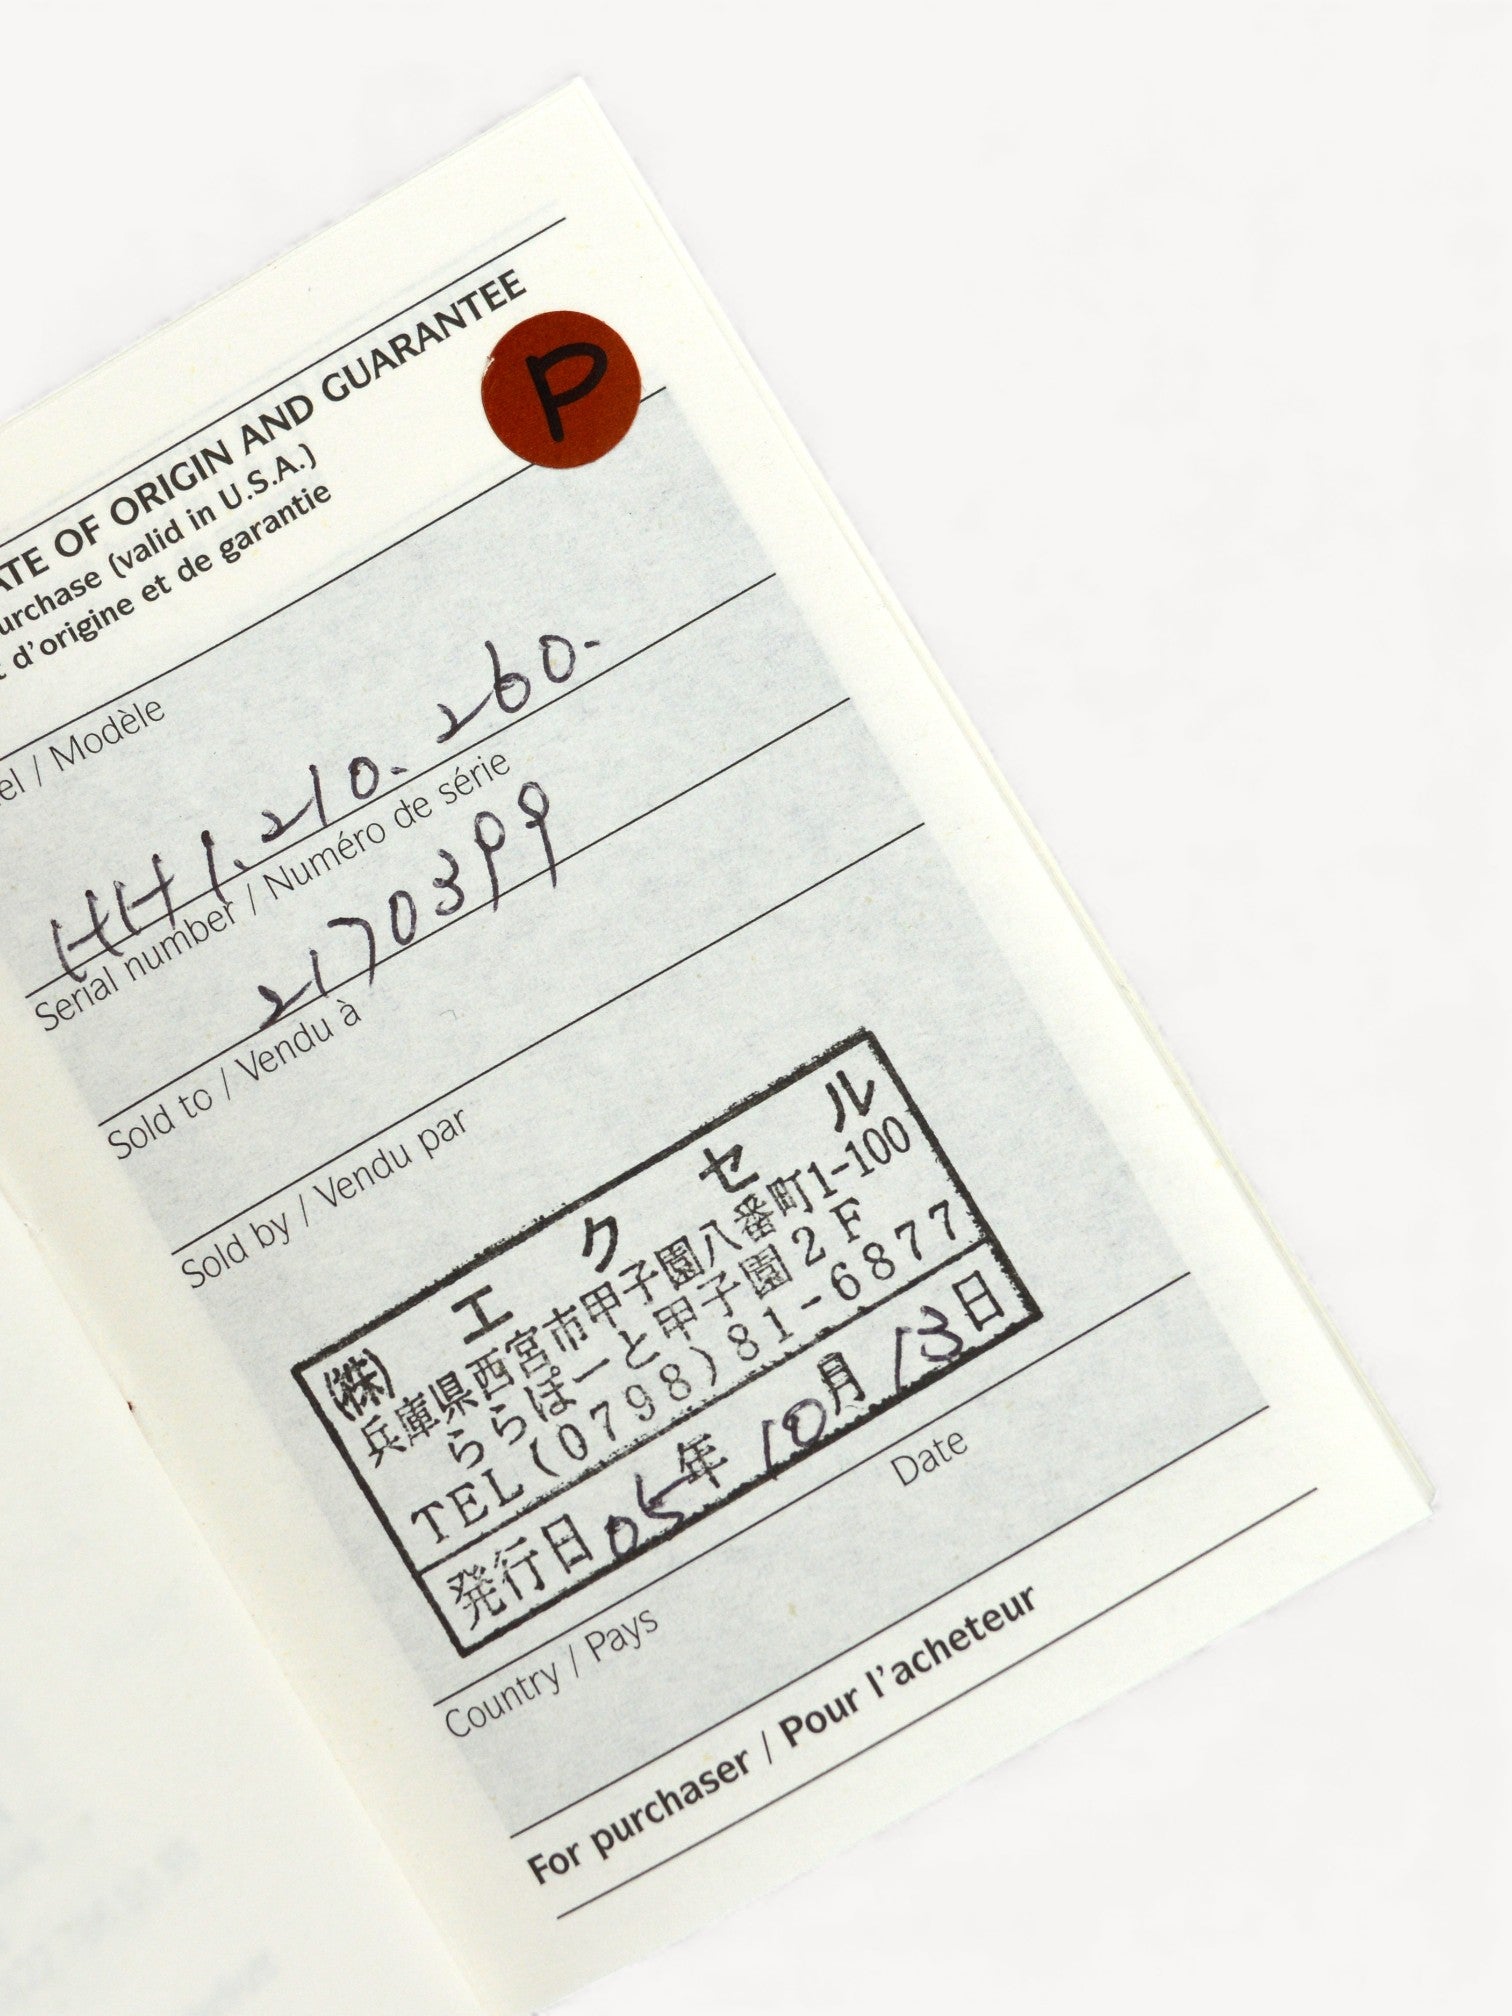 ATE OF ORIGIN AND GUARANTEE
P
urchase (valid in U.S.A.)
t d'origine et de garantie
el / Modèle
HH1.210.260.
Serial number / Numéro de série
2170399
Sold to / Vendu à
Sold by / Vendu par
㈱ エクセル
兵庫県西宮市甲子園八番町1-100
ららぽーと甲子園2F
TEL(0798)81-6877
発行日05年10月13日
Date
Country / Pays
For purchaser / Pour l'acheteur